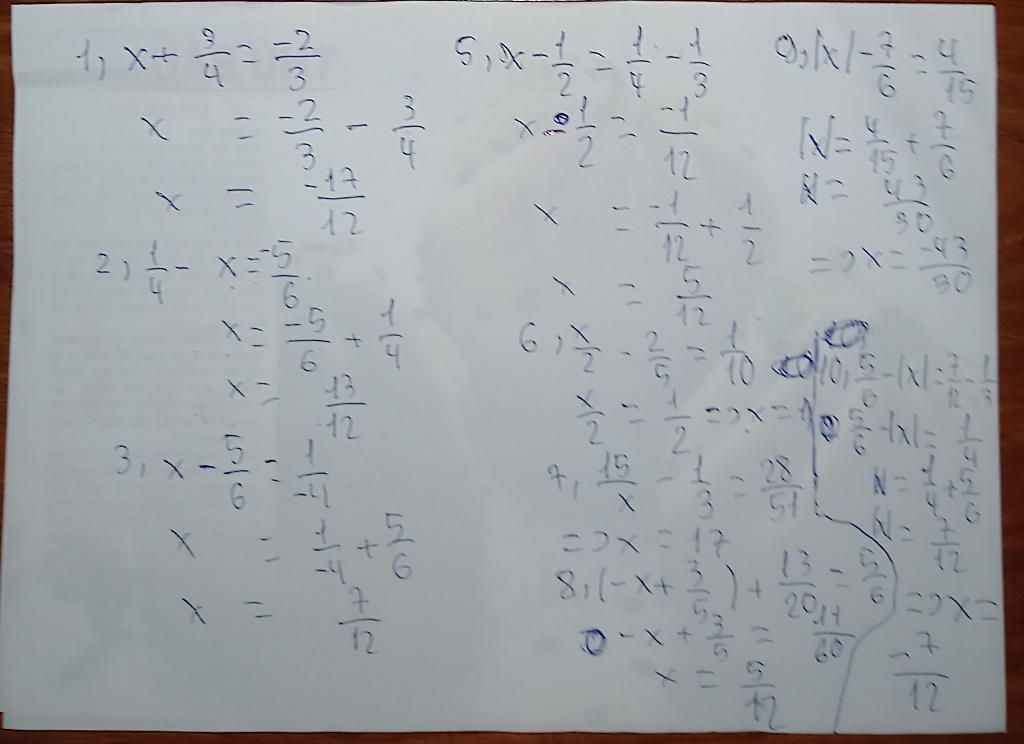 1, x + 3/4 = -2/3
x = -2/3 - 3/4
x = -17/12
2, 1/4 - x = -5/6
x = -5/6 + 1/4
x = 13/12
3, x - 5/6 = 1/-4
x = 1/-4 + 5/6
x = 7/12
5, x - 1/2 = 1/4 - 1/3
x - 1/2 = -1/12
x = -1/12 + 1/2
x = 5/12
6, x/2 - 2/5 = 1/10
x/2 = 1/2 => x = 1
7, 15/x - 1/3 = 28/51
=> x = 17
8, (-x + 3/5) + 13/20 = 5/6
-x + 3/5 = 11/60
x = 5/12
9, |x| - 7/6 = 4/15
|x| = 4/15 + 7/6
|x| = 43/30
=> x = -43/30
10, 5/6 - |x| = 7/12 - 1/3
5/6 - |x| = 1/4
|x| = 1/4 + 5/6
|x| = 7/12
=> x =
-7/12